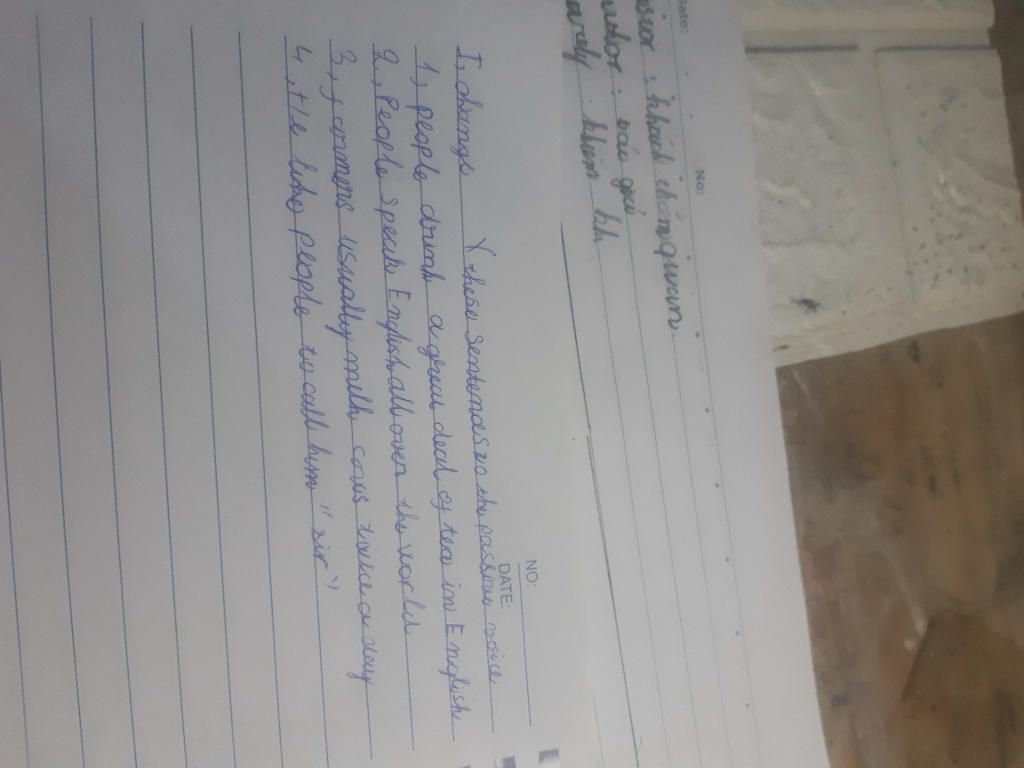 Date:
No:
: khách chăm quan
: tác giả
: hiếm khi
NO:
DATE:
I, change these sentences to the passive voice
1, people drink a great deal of tea in English
2, People speak English all over the world
3, farmers usually milk cows twice a day
4, He like people to call him "sir"